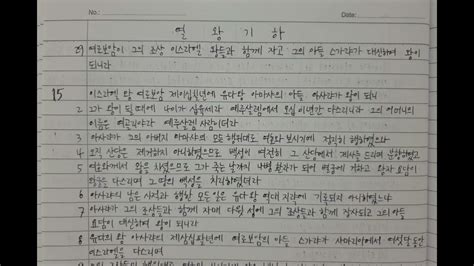 No.: Date:
열 왕 기 하
29 여로보암이 그의 조상 이스라엘 왕들과 함께 자고 그의 아들 스가랴가 대신하여 왕이
되니라
15 이스라엘 왕 여로보암 제이십칠년에 유다 왕 아마샤의 아들 아사랴가 왕이 되니
2 그가 왕이 될 때에 나이가 십육세라 예루살렘에서 오십이년간 다스리니라 그의 어머니의
이름은 여골리야라 예루살렘 사람이더라
3 아사랴가 그의 아버지 아마샤의 모든 행위대로 여호와 보시기에 정직히 행하였으나
4 오직 산당은 제거하지 아니하였으므로 백성이 여전히 그 산당에서 제사를 드리며 분향하였고
5 여호와께서 왕을 치셨으므로 그가 죽는 날까지 나병 환자가 되어 별궁에 거하고 왕자 요담이
왕궁을 다스리며 그 땅의 백성을 치리하였더라
6 아사랴의 남은 사적과 행한 모든 일은 유다 왕 역대지략에 기록되지 아니하였느냐
7 아사랴가 그의 조상들과 함께 자매 다윗 성에 그의 조상들과 함께 장사되고 그의 아들
요담이 대신하여 왕이 되니라
8 유다의 왕 아사랴의 제삼십팔년에 여로보암의 아들 스가랴가 사마리아에서 여섯달동안
이스라엘을 다스리며